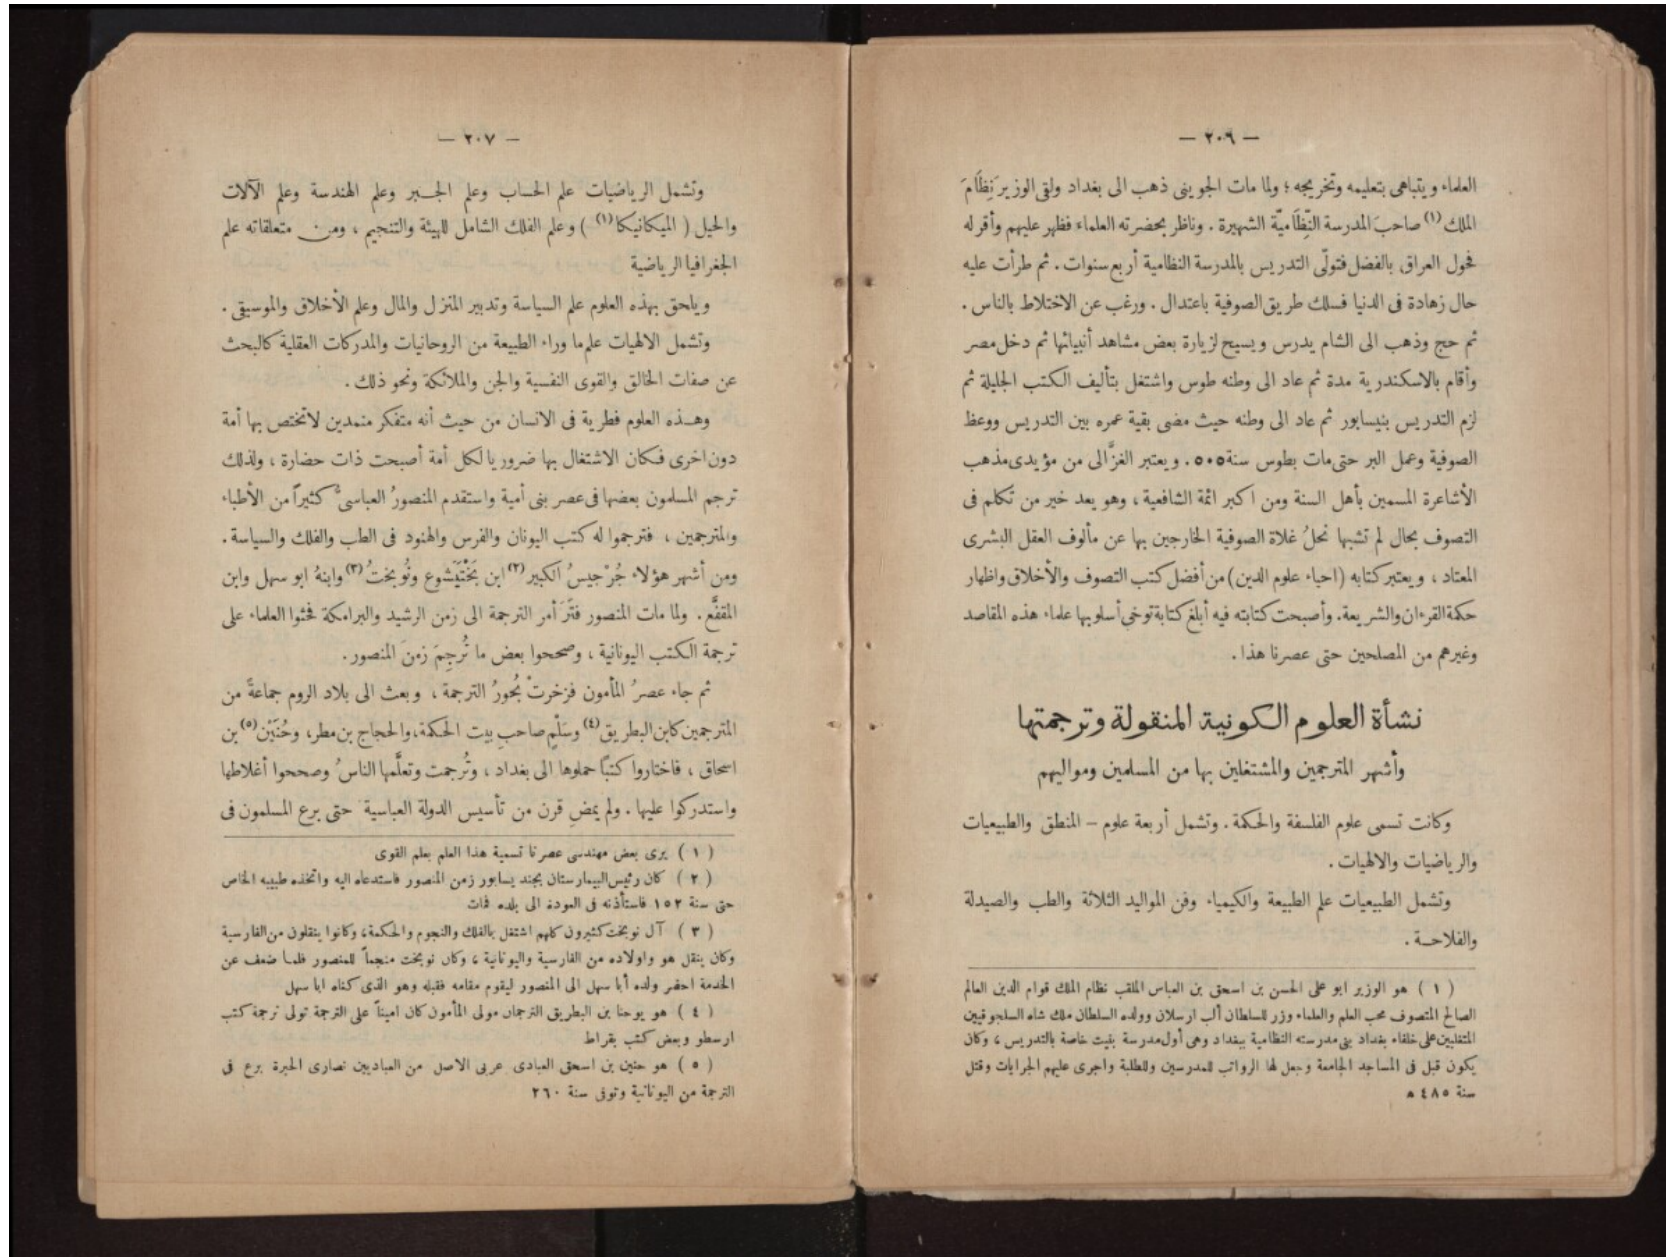 — ٢٠٦ —
العلماء ويتباهى بتعليمه وتخريجه ؛ ولما مات الجوينى ذهب الى بغداد ولقى الوزير نِظَامَ
الملك (١) صاحبَ المدرسة النِّظَاميّة الشهيرة . وناظر بحضرته العلماء فظهر عليهم وأقر له
فحول العراق بالفضل فتولّى التدريس بالمدرسة النظامية أربع سنوات . ثم طرأت عليه
حال زهادة فى الدنيا فسلك طريق الصوفية باعتدال . ورغب عن الاختلاط بالناس .
ثم حج وذهب الى الشام يدرس ويسيح لزيارة بعض مشاهد أنبيائها ثم دخل مصر
وأقام بالاسكندرية مدة ثم عاد الى وطنه طوس واشتغل بتأليف الكتب الجليلة ثم
لزم التدريس بنيسابور ثم عاد الى وطنه حيث مضى بقية عمره بين التدريس ووعظ
الصوفية وعمل البر حتى مات بطوس سنة ٥٠٥ . ويعتبر الغزَّالى من مؤيدى مذهب
الأشاعرة المسمين بأهل السنة ومن اكبر ائمة الشافعية ، وهو يعد خير من تكلم فى
التصوف بحال لم تشبها نحلُ غلاة الصوفية الخارجين بها عن مألوف العقل البشرى
المعتاد ، ويعتبر كتابه (احياء علوم الدين) من أفضل كتب التصوف والأخلاق واظهار
حكمة القرءان والشريعة . وأصبحت كتابته فيه أبلغ كتابة توخى أسلوبها علماء هذه المقاصد
وغيرهم من المصلحين حتى عصرنا هذا .
نشأة العلوم الكونية المنقولة وترجمتها
وأشهر المترجمين والمشتغلين بها من المسلمين ومواليهم
وكانت تسمى علوم الفلسفة والحكمة . وتشمل أربعة علوم – المنطق والطبيعيات
والرياضيات والالهيات .
وتشمل الطبيعيات علم الطبيعة والكيمياء وفن المواليد الثلاثة والطب والصيدلة
والفلاحة .
( ١ ) هو الوزير ابو على الحسن بن اسحق بن العباس الملقب نظام الملك قوام الدين العالم
الصالح المتصوف محب العلم والعلماء وزر للسلطان ألب ارسلان وولده السلطان ملك شاه السلجوقيين
المتغلبين على خلفاء بغداد بنى مدرسته النظامية ببغداد وهى أول مدرسة بنيت خاصة بالتدريس ، وكان
يكون قبل فى المساجد الجامعة وجعل لها الرواتب للمدرسين وللطلبة واجرى عليهم الجرايات وقتل
سنة ٤٨٥ ه
— ٢٠٧ —
وتشمل الرياضيات علم الحساب وعلم الجبر وعلم الهندسة وعلم الآلات
والحيل ( الميكانيكا (١) ) وعلم الفلك الشامل للهيئة والتنجيم ، ومن متعلقاته علم
الجغرافيا الرياضية
ويلحق بهذه العلوم علم السياسة وتدبير المنزل والمال وعلم الأخلاق والموسيقى .
وتشمل الالهيات علم ما وراء الطبيعة من الروحانيات والمدركات العقلية كالبحث
عن صفات الخالق والقوى النفسية والجن والملائكة ونحو ذلك .
وهذه العلوم فطرية فى الانسان من حيث أنه متفكر متمدين لاتختص بها أمة
دون اخرى فكان الاشتغال بها ضروريا لكل أمة أصبحت ذات حضارة ، ولذلك
ترجم المسلمون بعضها فى عصر بنى أمية واستقدم المنصورُ العباسىّ كثيراً من الأطباء
والمترجمين ، فترجموا له كتب اليونان والفرس والهنود فى الطب والفلك والسياسة .
ومن أشهر هؤلاء جُرْجيسُ الكبير (٢) ابن بَخْتَيَشوع ونُوبختُ (٣) وابنهُ ابو سهل وابن
المقفَّع . ولما مات المنصور فتَرَ أمر الترجمة الى زمن الرشيد والبرامكة فحثوا العلماء على
ترجمة الكتب اليونانية ، وصححوا بعض ما تُرجِمَ زمنَ المنصور .
ثم جاء عصرُ المأمون فزخرتْ بُحورُ الترجمة ، وبعث الى بلاد الروم جماعةً من
المترجمين كابن البطريق (٤) وسَلْمٍ صاحبِ بيت الحكمة، والحجاج بن مطر، وحُنَيْن (٥) بن
اسحاق ، فاختاروا كتباً حملوها الى بغداد ، وتُرجمت وتعلَّمها الناسُ وصححوا أغلاطها
واستدركوا عليها . ولم يمضِ قرن من تأسيس الدولة العباسية حتى برع المسلمون فى
( ١ ) يرى بعض مهندسى عصرنا تسمية هذا العلم بعلم القوى
( ٢ ) كان رئيس البيمارستان بجند يسابور زمن المنصور فاستدعاه اليه واتخذه طبيبه الخاص
حتى سنة ١٥٢ فاستأذنه فى العودة الى بلده فمات
( ٣ ) آل نوبخت كثيرون كلهم اشتغل بالفلك والنجوم والحكمة، وكانوا ينقلون من الفارسية
وكان ينقل هو واولاده من الفارسية واليونانية ، وكان نوبخت منجماً للمنصور فلما ضعف عن
الخدمة احضر ولده أبا سهل الى المنصور ليقوم مقامه فقبله وهو الذى كناه ابا سهل
( ٤ ) هو يوحنا بن البطريق الترجمان مولى المأمون كان اميناً على الترجمة تولى ترجمة كتب
ارسطو وبعض كتب بقراط
( ٥ ) هو حنين بن اسحق العبادى عربى الاصل من العباديين نصارى الحيرة برع فى
الترجمة من اليونانية وتوفى سنة ٢٦٠